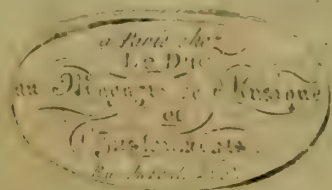 a Paris chez
Le Duc
au Magazin de Musique
et
d'Instruments